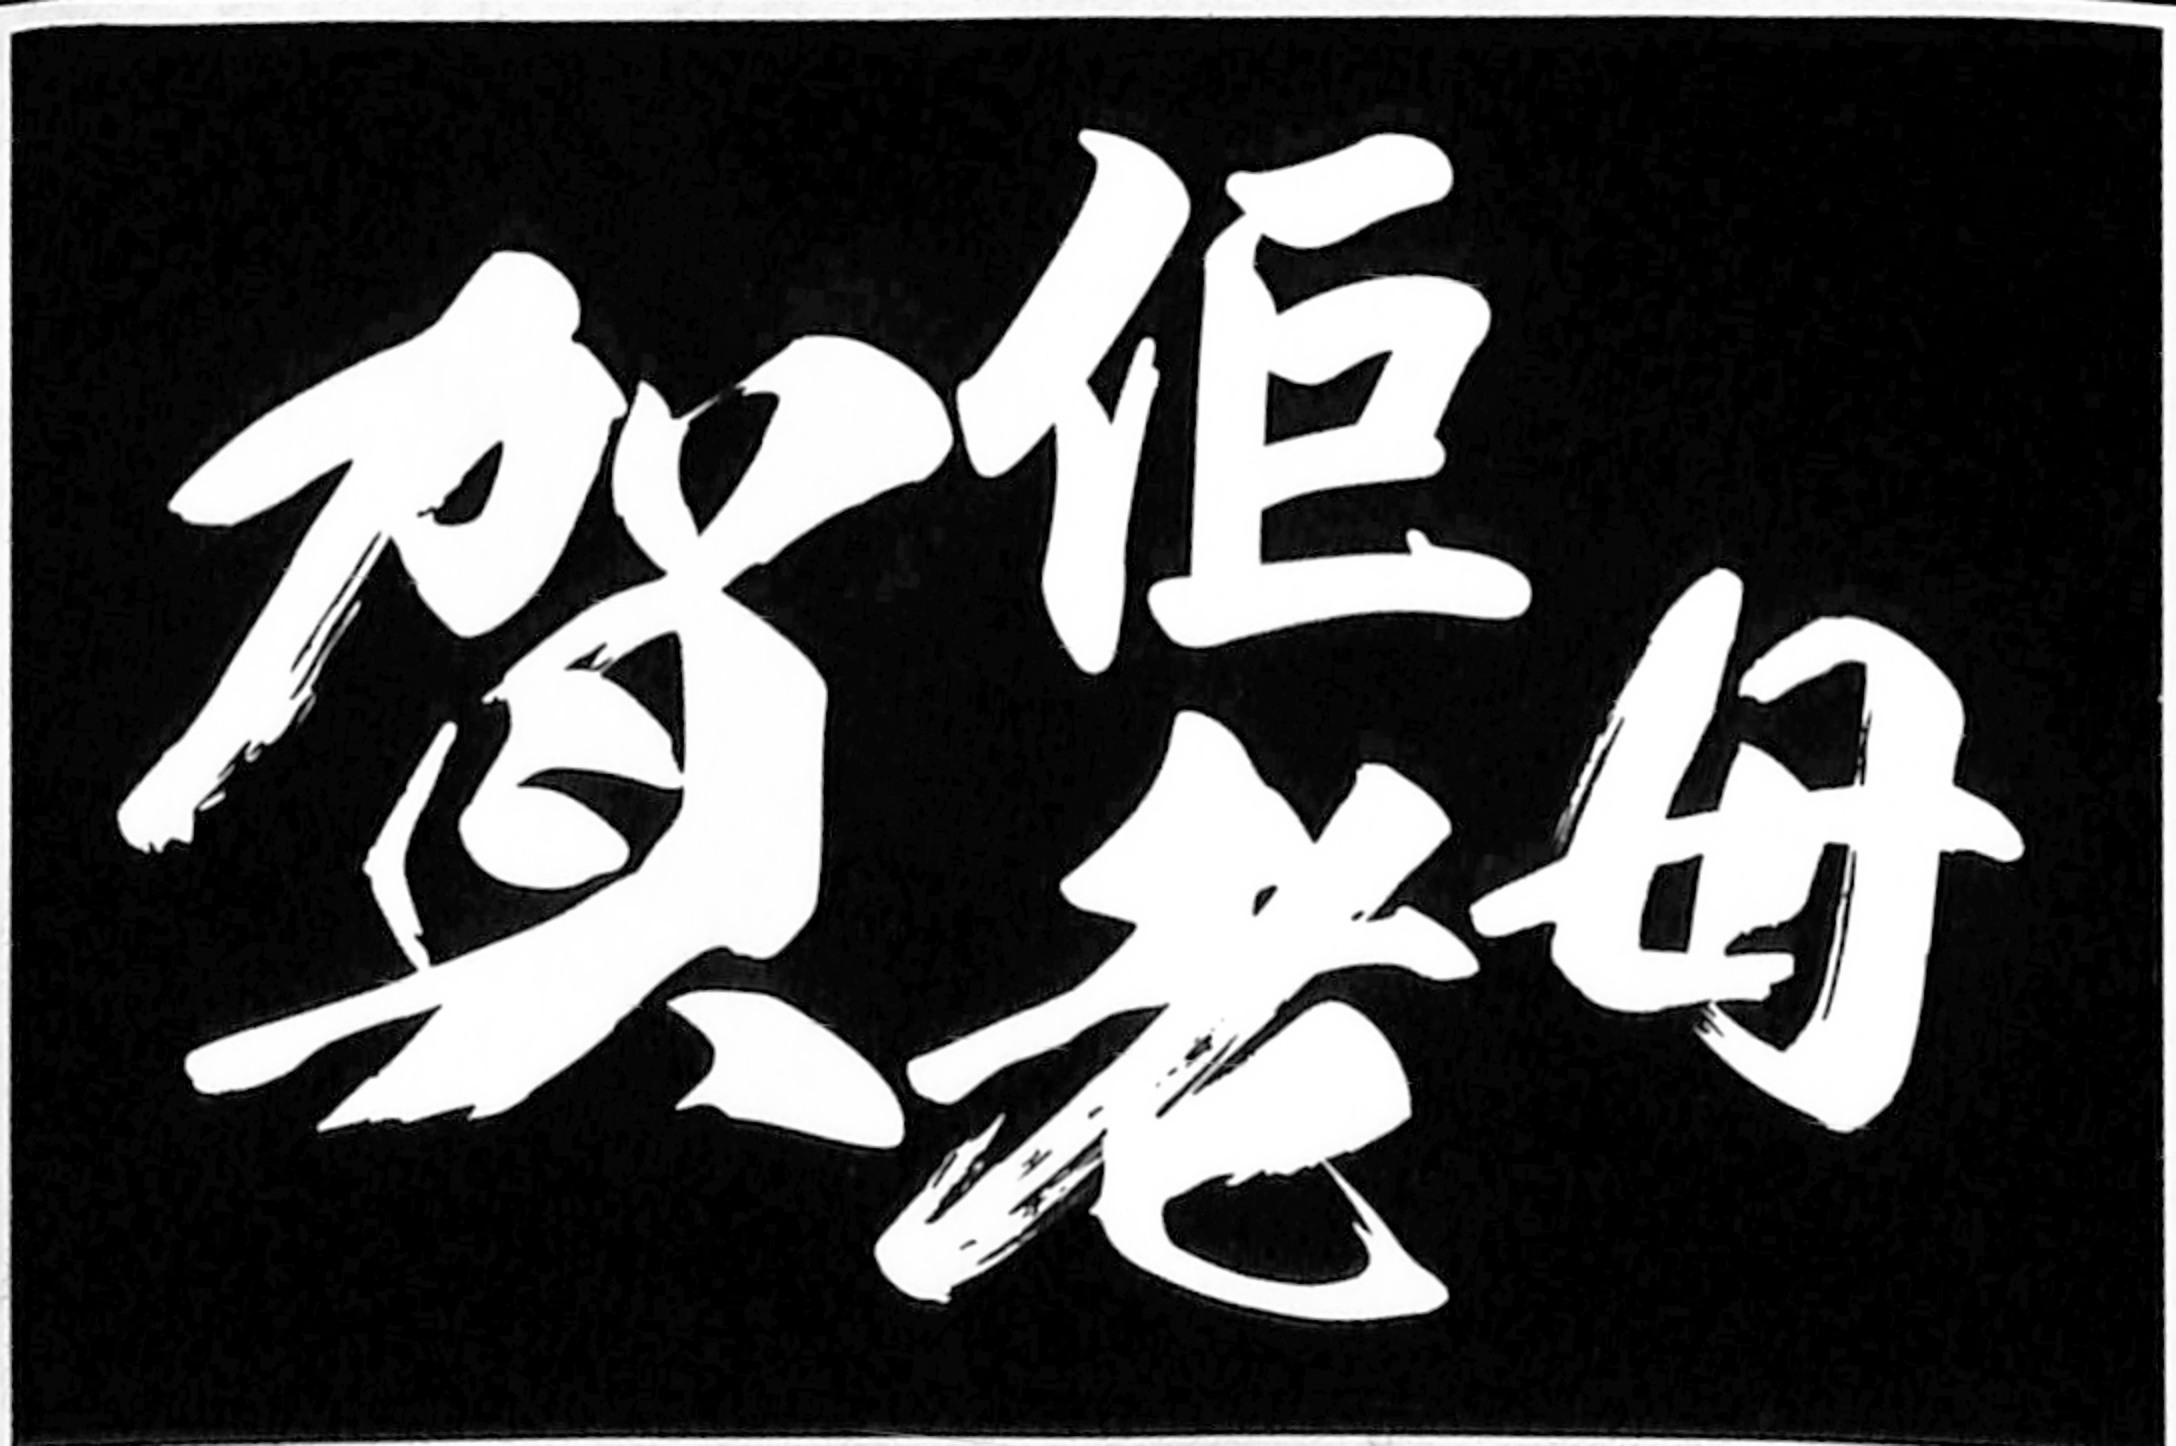 賀佢老母